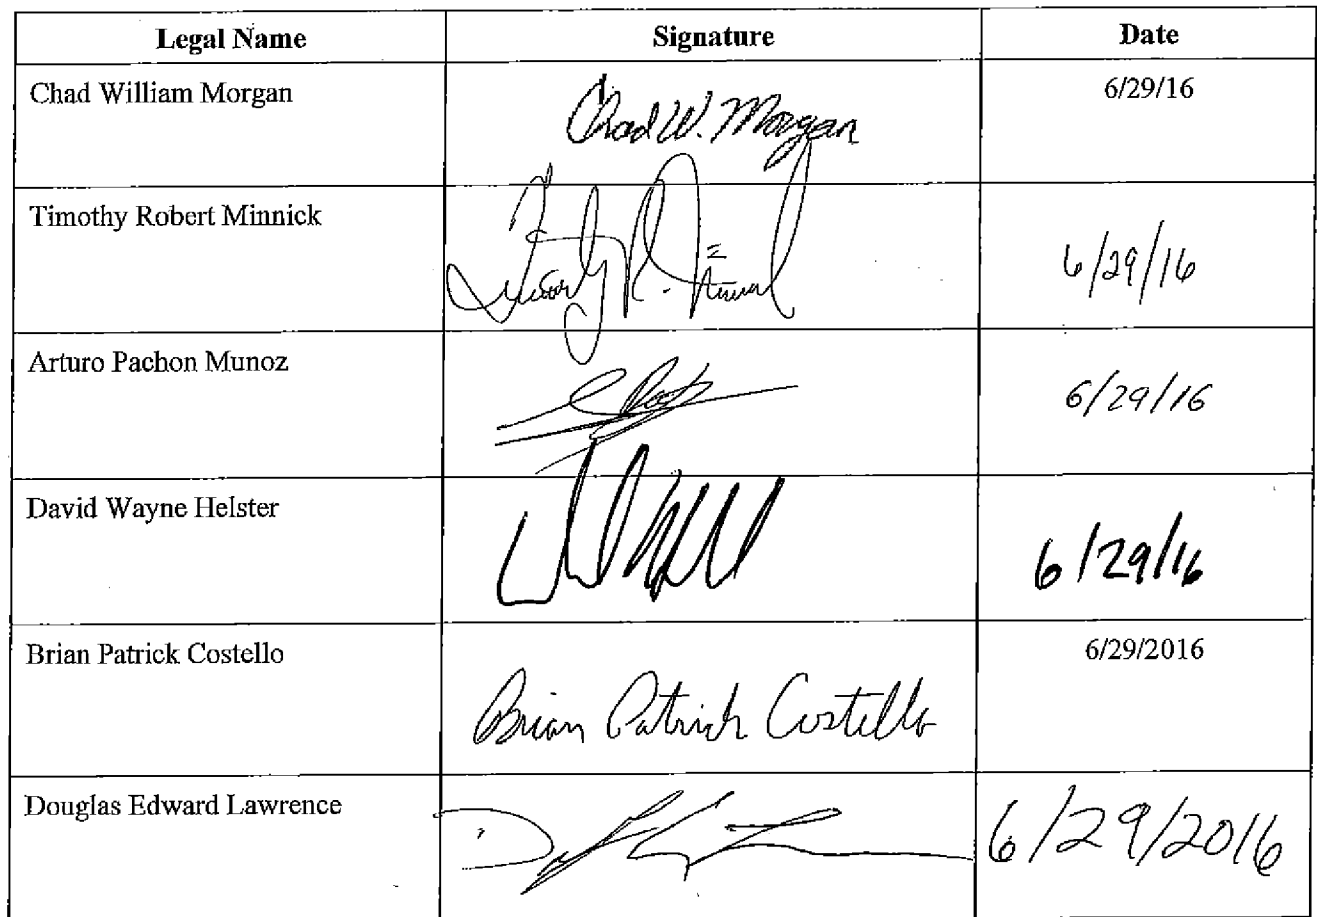 Legal Name Signature Date
Chad William Morgan Chad W. Morgan 6/29/16
Timothy Robert Minnick 6/29/16
Arturo Pachon Munoz 6/29/16
David Wayne Helster 6/29/16
Brian Patrick Costello Brian Patrick Costello 6/29/2016
Douglas Edward Lawrence 6/29/2016